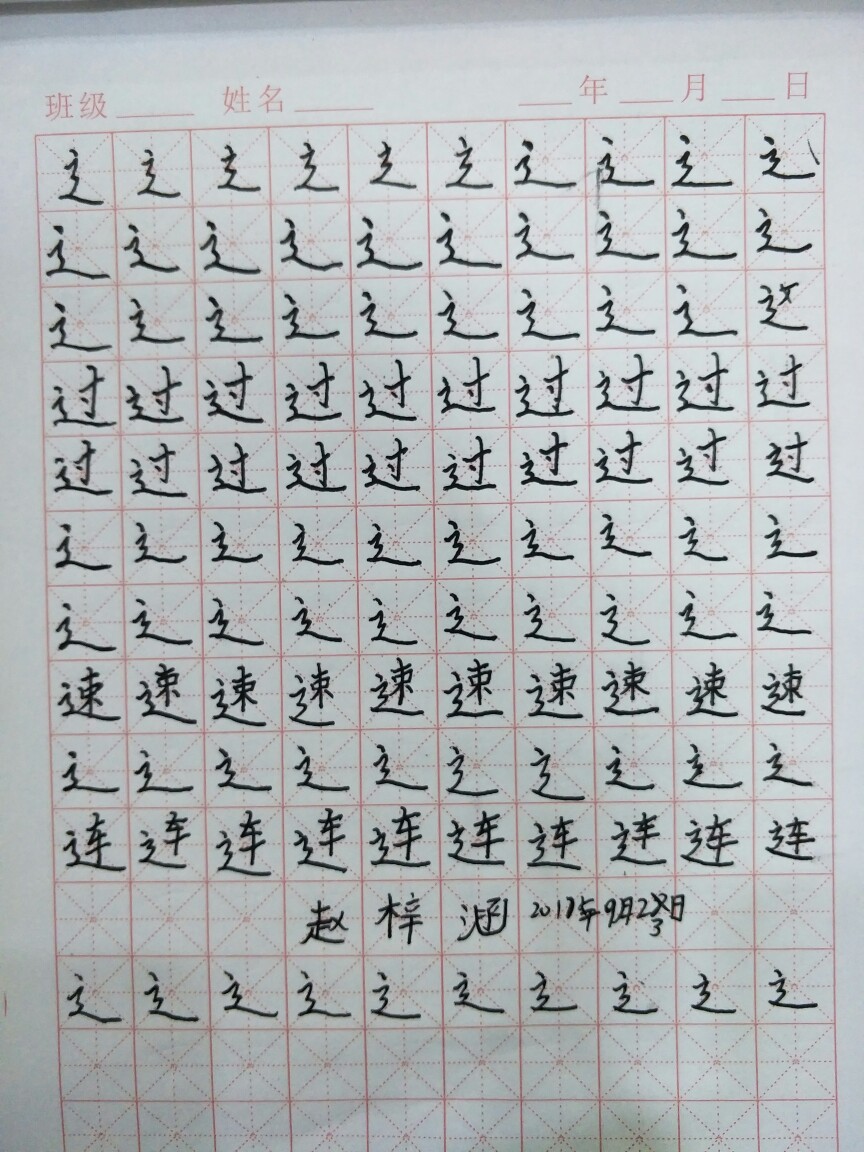 班级 姓名 年 月 日
辶 辶 辶 辶 辶 辶 辶 辶 辶 辶
辶 辶 辶 辶 辶 辶 辶 辶 辶 辶
辶 辶 辶 辶 辶 辶 辶 辶 辶
过 过 过 过 过 过 过 过 过 过
过 过 过 过 过 过 过 过 过 过
辶 辶 辶 辶 辶 辶 辶 辶 辶 辶
辶 辶 辶 辶 辶 辶 辶 辶 辶 辶
速 速 速 速 速 速 速 速 速 速
辶 辶 辶 辶 辶 辶 辶 辶 辶 辶
连 连 连 连 连 连 连 连 连 连
赵 梓 涵 2017年9月23日
辶 辶 辶 辶 辶 辶 辶 辶 辶 辶